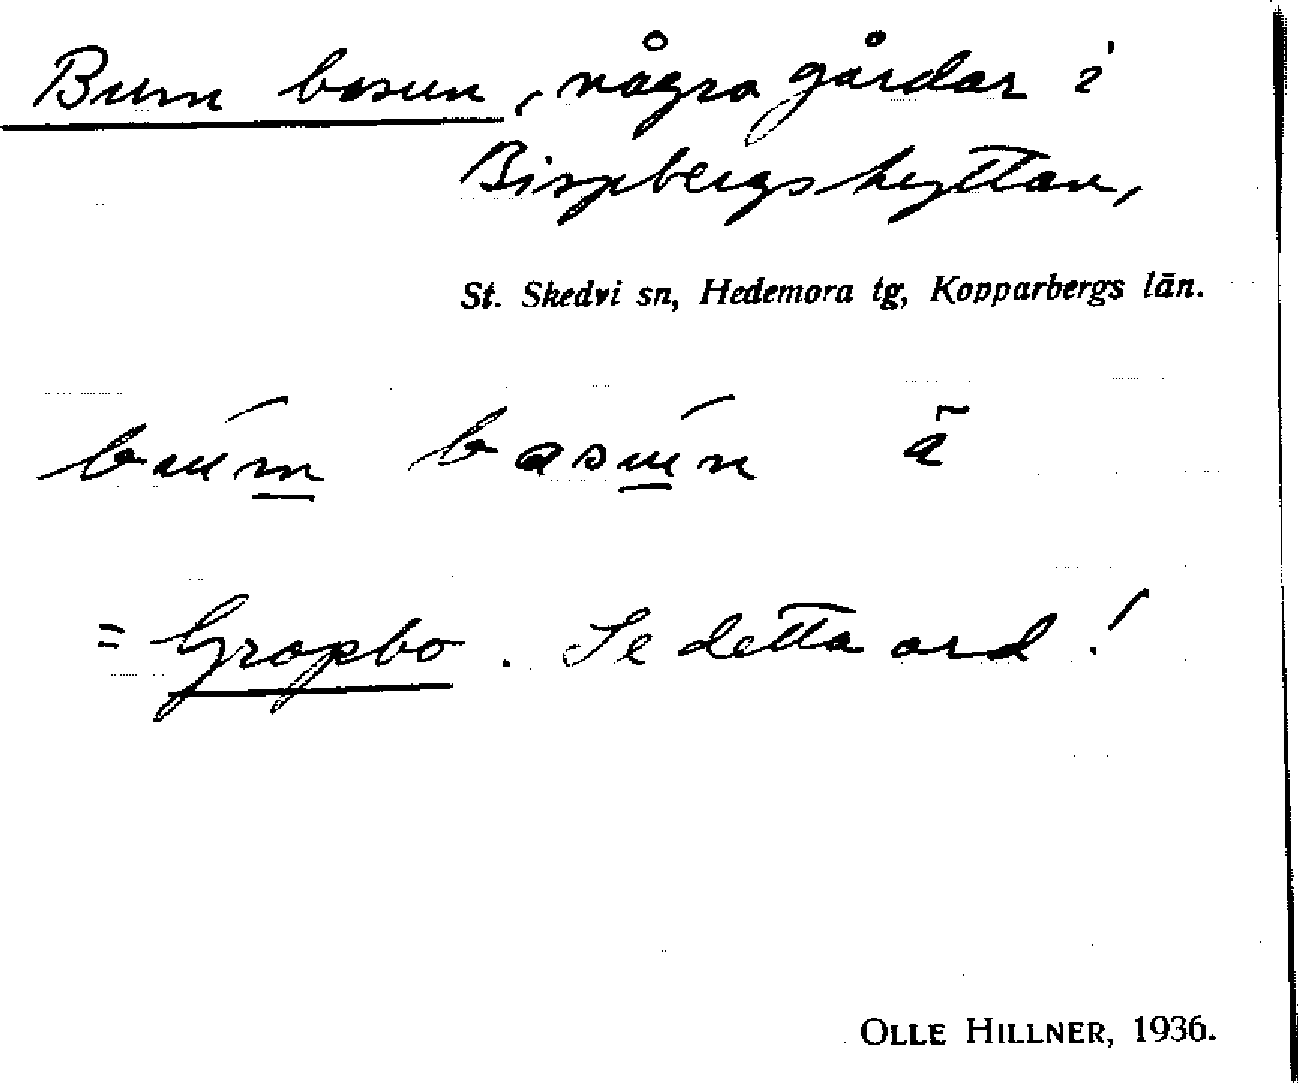 Bum basun, några gårdar i
Bispbergshyttan,
St. Skedvi sn, Hedemora tg, Kopparbergs län.
búm basún ã
= Gropbo. Se detta ord!
OLLE HILLNER, 1936.